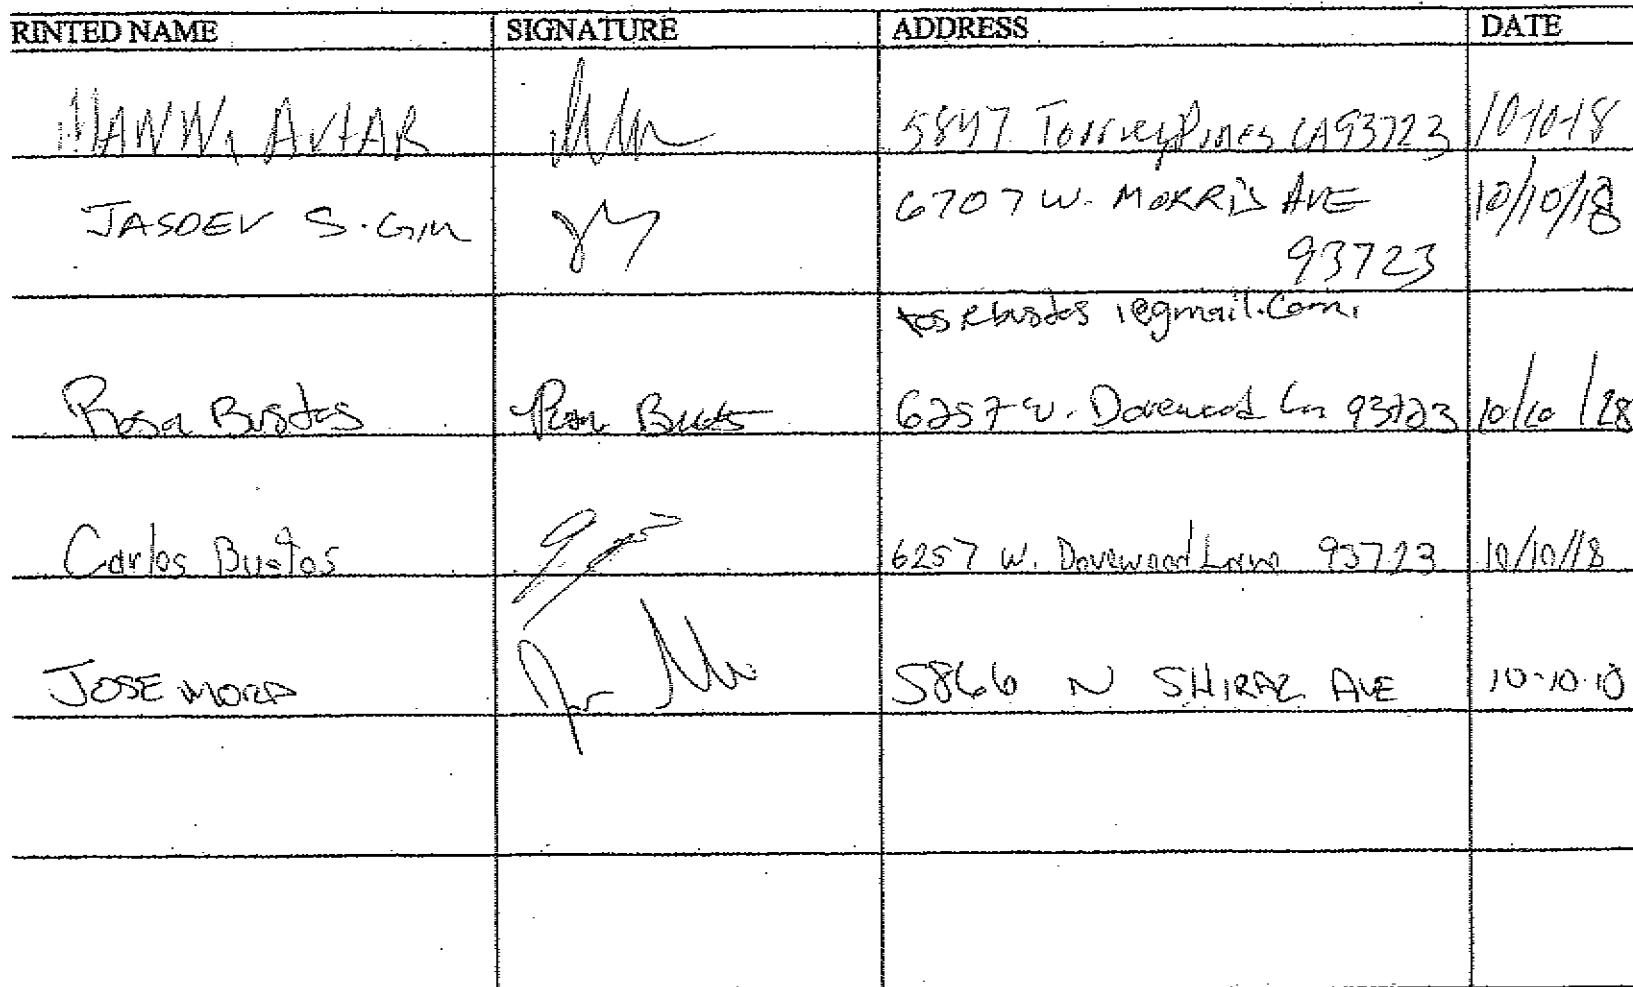 RINTED NAME SIGNATURE ADDRESS DATE
MANN, AVTAR 5847 Torrey Pines CA 93723 10-10-18
JASDEV S. Gill 6707 W. MORRIS AVE 10/10/18
93723
rosebustos1@gmail.com
Rosa Bustos Rosa Bustos 6257 W. Dovewood Ln 93723 10/10/18
Carlos Bustos 6257 W. Dovewood Lane 93723 10/10/18
JOSE MORA 5866 N SHIRAZ AVE 10-10-18